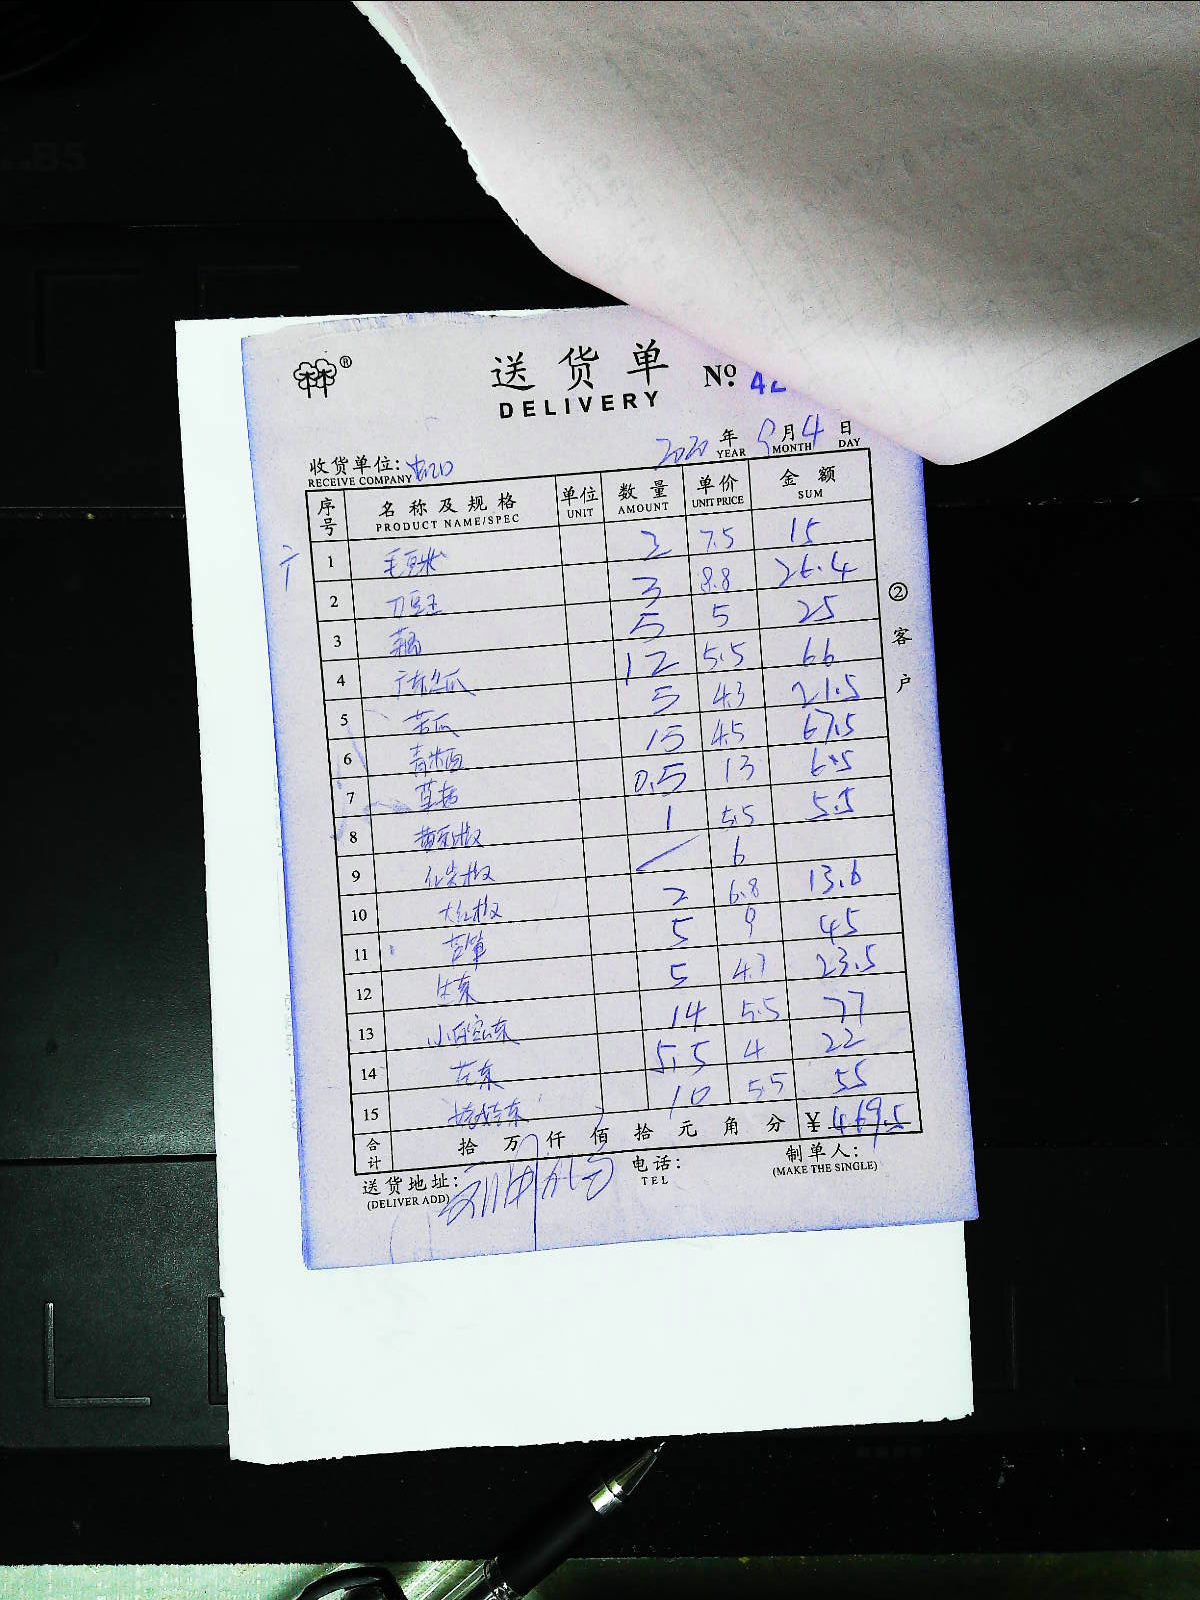 B5
®
送货单 № 42
DELIVERY
2020 年 9 月 4 日
YEAR MONTH DAY
收货单位:
RECEIVE COMPANY
序号 名称及规格 单位 数量 单价 金额
PRODUCT NAME/SPEC UNIT AMOUNT UNIT PRICE SUM
1 毛豆米 2 7.5 15
2 刀豆王 3 8.8 26.4
3 5 5 25
4 广东丝瓜 12 5.5 66
5 苦瓜 5 4.3 21.5
6 青米西 15 4.5 67.5
7 草菇 0.5 13 6.5
8 黄彩椒 1 5.5 5.5
9 红尖椒 6
10 大红椒 2 6.8 13.6
11 5 9 45
12 生菜 5 4.7 23.5
13 14 5.5 77
14 花菜 5.5 4 22
15 10 5.5 55
合计 拾 万 仟 佰 拾 元 角 分 ¥ 469.5
送货地址: 电话: 制单人:
(DELIVER ADD) TEL (MAKE THE SINGLE)
② 客户